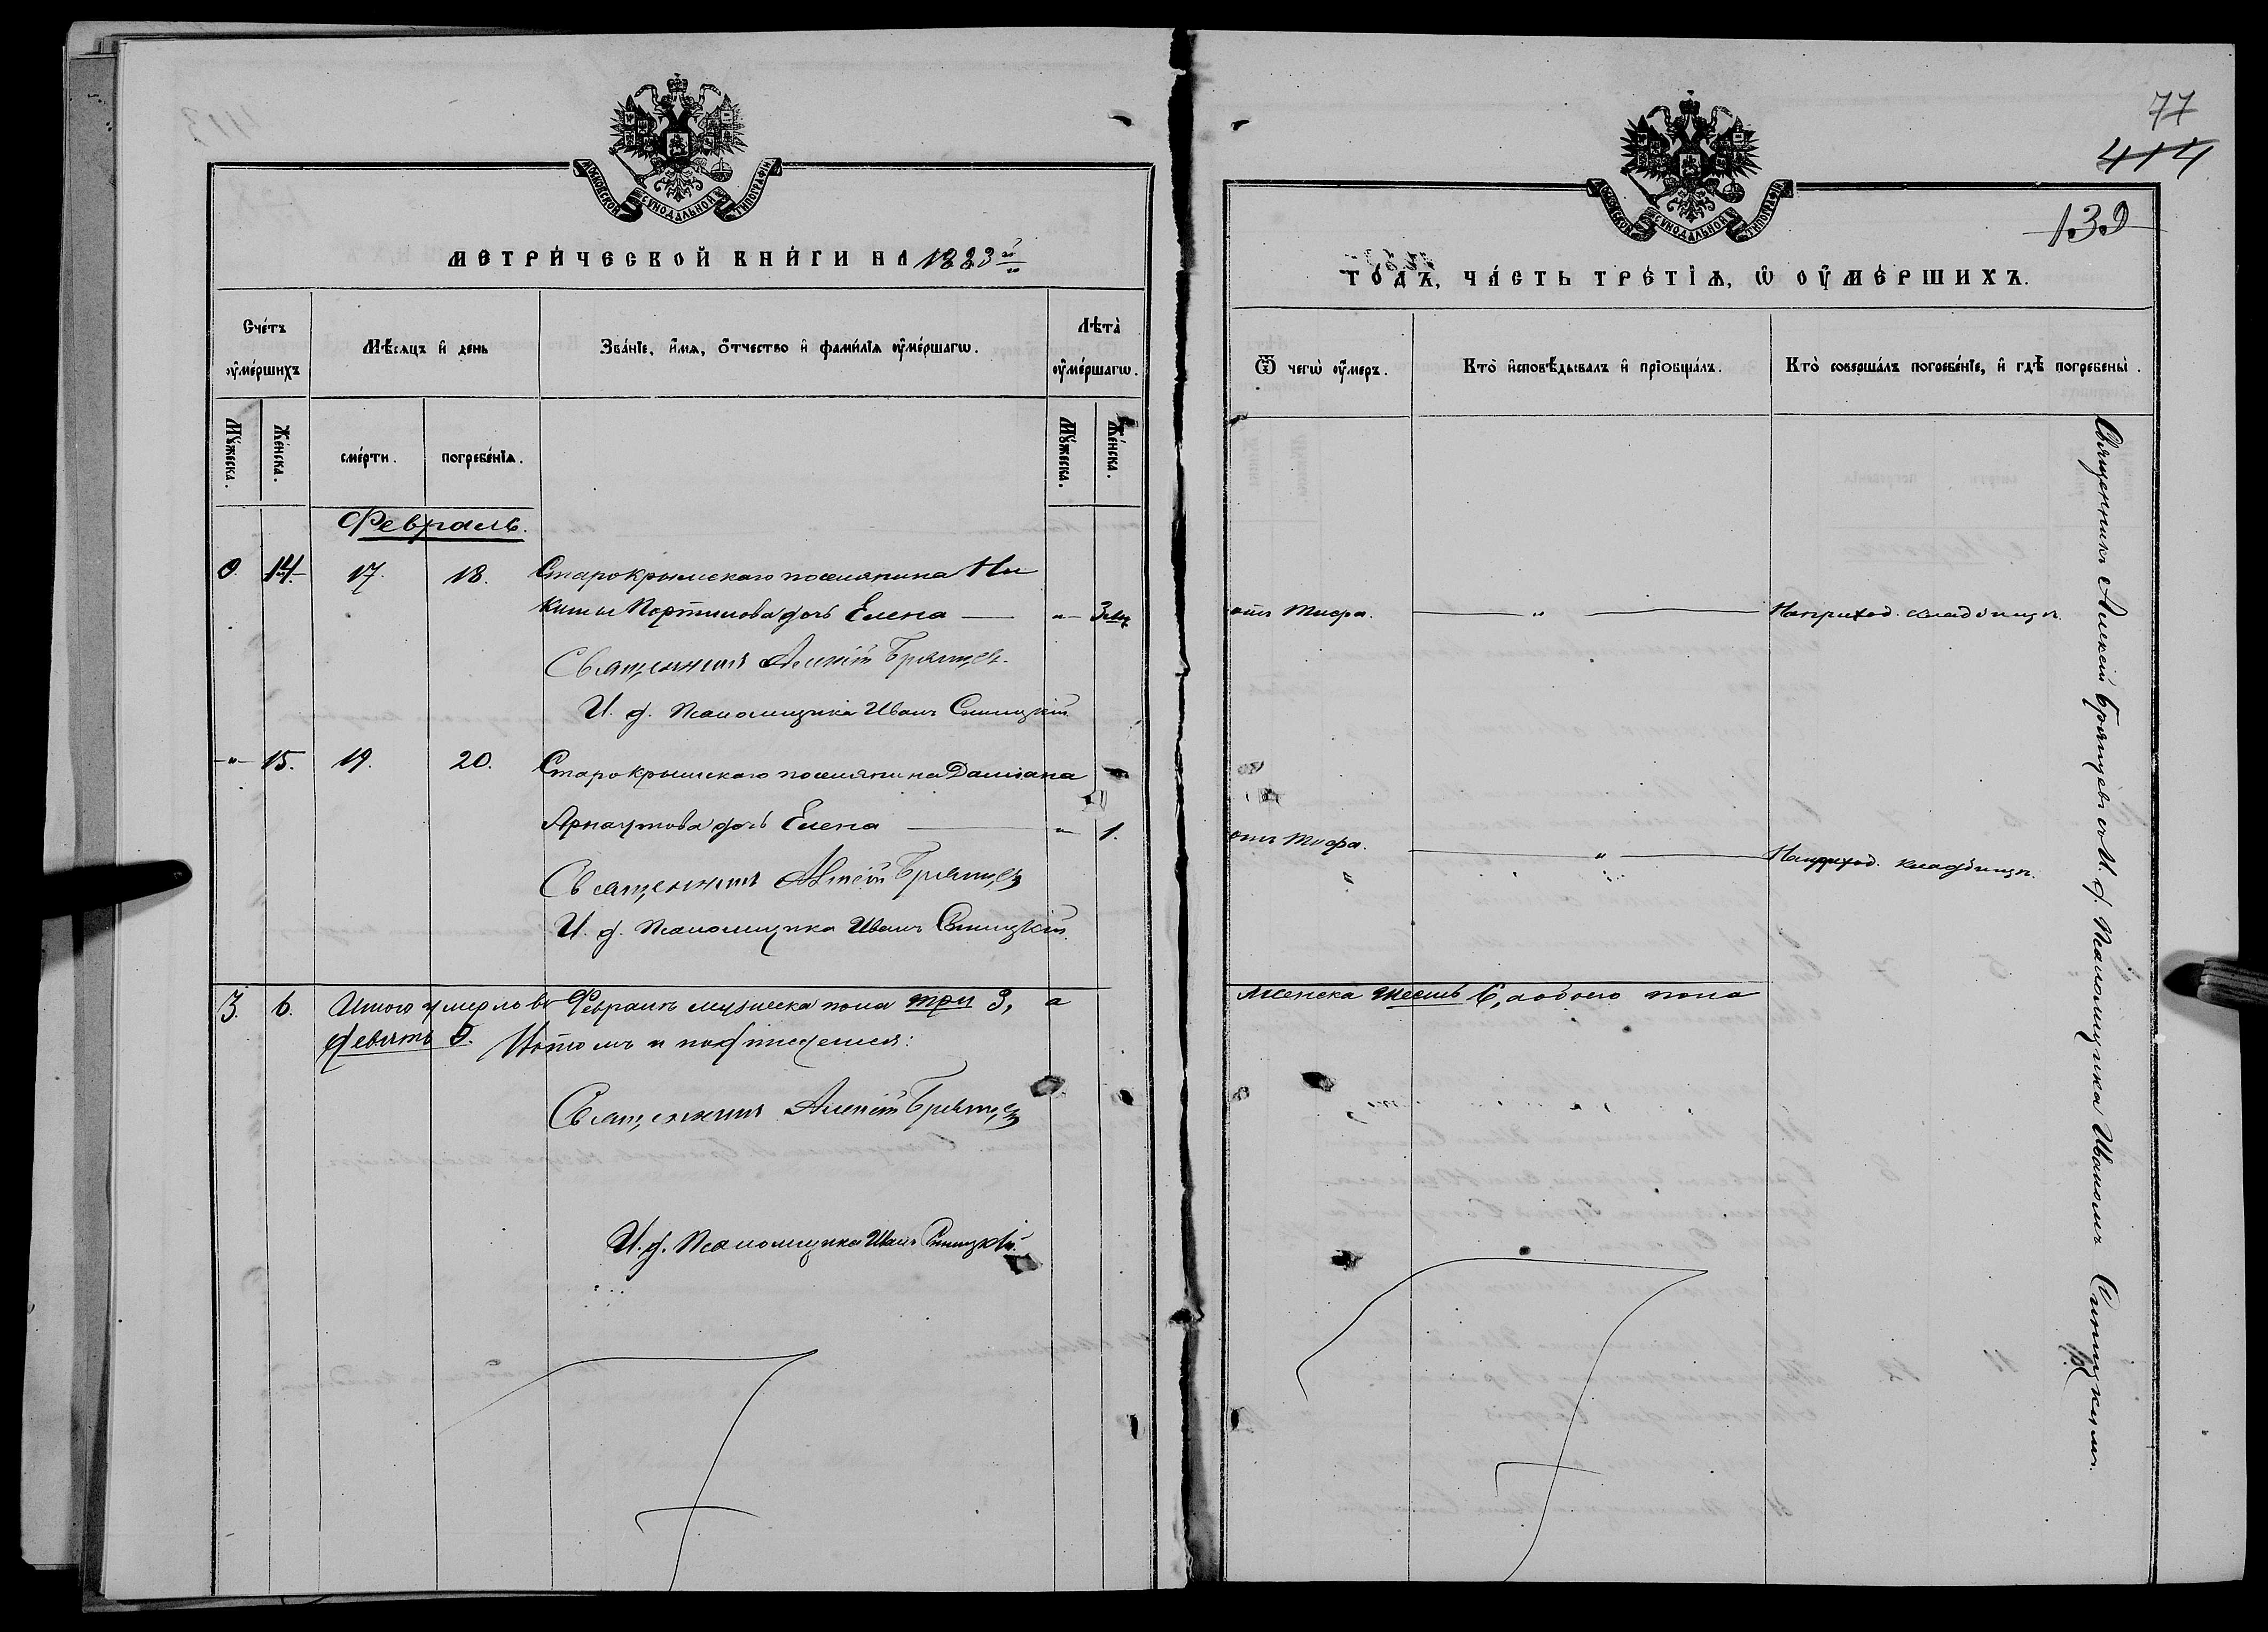 МОСКОВСКОЙ СѴНОДАЛЬНОЙ ТИПОГРАФІИ
МЕТРИ́ЧЕСКОЙ КНИ́ГИ НА 1883й
Сче́тъ оу҆ме́ршихъ
Мѣ́сяцъ и҆ день
Зва́нїе, и҆́мѧ, ѻ҆́тчество и҆ фами́лїѧ оу҆ме́ршагѡ.
Лѣта̀ оу҆ме́ршагѡ.
Мꙋ́жеска.
Же́нска.
сме́рти.
погребе́нїѧ.
Мꙋ́жеска.
Же́нска.
Февраль.
0. 14. 17. 18. Старокрымскаго поселянина Ни
киты Портилова дочь Елена — „ — 3 м.
Священникъ Алексій Брянцевъ
И. д. Псаломщика Иванъ Синицкій.
„ 15. 19. 20. Старокрымскаго поселянина Даміана
Арнаутова дочь Елена — „ 1.
Священникъ Алексій Брянцевъ
И. д. Псаломщика Иванъ Синицкій.
3. 6. Итого умерло въ Февралѣ мужеска пола три 3, а
девять 9. Въ томъ и подписуемся:
Священникъ Алексій Брянцевъ
И. д. Псаломщика Иванъ Синицкій.
77
414
139
МОСКОВСКОЙ СѴНОДАЛЬНОЙ ТИПОГРАФІИ
ГО́ДЪ, ЧА́СТЬ ТРЕ́ТЇѦ, Ѡ҆ ОУ҆МЕ́РШИХЪ.
Ѿ чегѡ̀ оу҆́меръ.
Кто̀ и҆сповѣ́дывалъ и҆ прїѡбща́лъ.
Кто̀ соверша́лъ погребе́нїе, и҆ гдѣ̀ погребены̀.
отъ тифа. — „ — На приход. кладбищѣ.
отъ тифа. — „ — На приход. кладбищѣ.
женска шесть 6, а обоего пола
Священникъ Алексій Брянцевъ съ И. д. Псаломщика Иваномъ Синицкимъ.